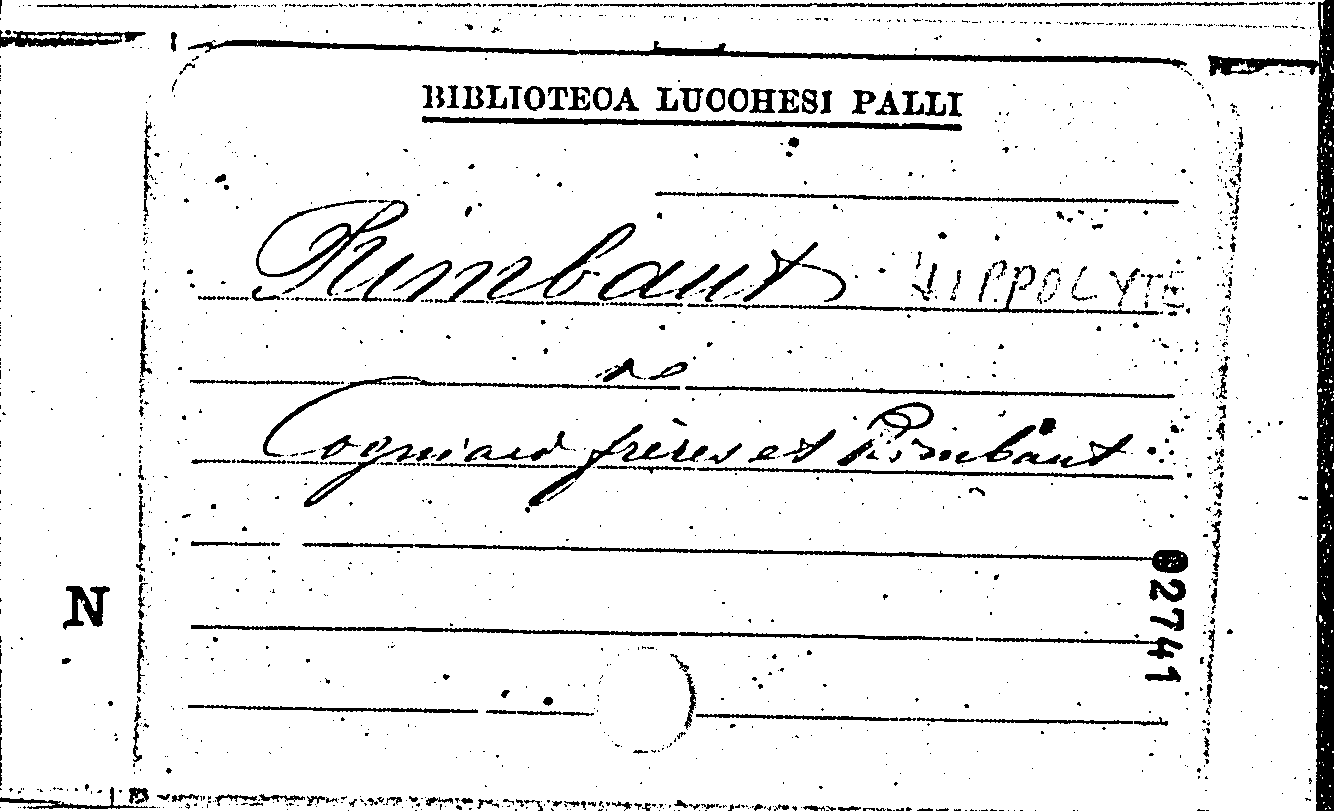 BIBLIOTECA LUCCHESI PALLI
Rimbaut HIPPOLYTE
Cogniard frères et Rimbaut
N
02741